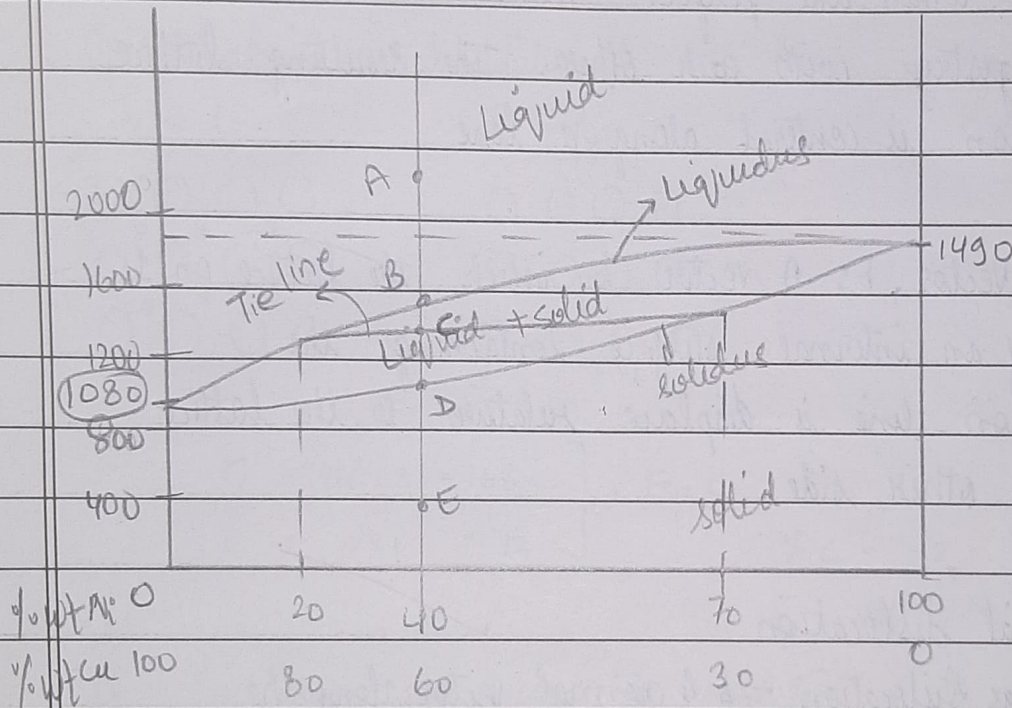 Liquid
A
Liquidus
2000
1490
Tie line
B
1600
C
Liquid + solid
1200
solidus
1080
D
800
E
solid
400
% wt Ni 0 20 40 70 100
% wt Cu 100 80 60 30 0